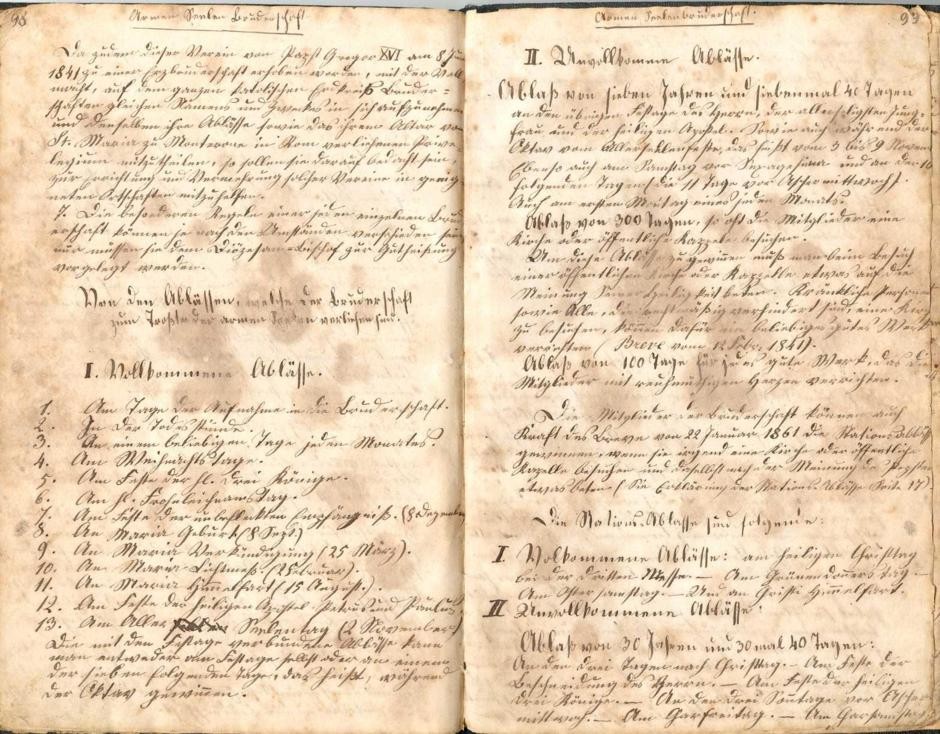 96
Armen Seelen Bruderschaft
Da zudem dieser Verein von Papst Gregor XVI am 8
1841 zu einer Erzbruderschaft erhoben worden, mit der Voll
macht, auf dem ganzen katolischen Erdkreiß Bruder=
schaften gleichen Namens und Zwecks in sich aufzunehmen
und denselben ihre Ablässe sowie das ihrem Altar von
St. Maria zu Monterone in Rom verliehenen Prive
legium mitzutheilen, so sollen sie darauf bedacht sein,
zur Errichtung und Vermehrung solcher Vereine in geeig
neten Ortschaften mitzuhelfen.
7. Die besonderen Regeln einer jeden einzelnen Brud
erschaft können je nach den Umständen verschieden sein
nur müssen sie dem Diözesan-Bischof zur Gutheißung
vorgelegt werden.
Von den Ablässen, welche der Bruderschaft
zum Troste der armen Seelen verliehen sind.
I. Vollkommene Ablässe.
1. Am Tage der Aufnahme in die Bruderschaft.
2. In der Todesstunde.
3. An einem beliebigen Tage jeden Monates.
4. Am Weihnachtstage.
5. Am Feste der hl. drei Könige.
6. Am hl. Frohnleichnamstag.
7. Am Feste der unbeflekten Empfängniß. (8 Dezember
8. An Maria Geburt (8 Sept.)
9. An Maria Verkündigung (25 März).
10. An Maria Lichtmeß. (2 Februar).
11. An Maria Himmelfart (15 August.)
12. Am Feste der heiligen Apostel Petrus und Paulus.
13. Am Aller Seelentag (2 November)
Die mit dem Festage verbundene Ablässe kann
man entweder am Festage selbst oder an einem
der sieben folgenden Tage, das heißt, während
der Oktav gewinnen.
Armen Seelenbruderschaft.
II. Unvollkommene Ablässe.
Ablaß von sieben Jahren und siebenmal 40 Tagen
an den übrigen Festage des Herrn, der allerseligsten Jung=
frau und der heiligen Apostel. Sowie auch während der
Oktav vom Allerseelenfeste, das heißt vom 3 bis 9 Novem
Ebenso auch am Samstag vor Sexagesima und an den 10
folgenden Tagen (die 11 Tage vor Aschermittwoch).
Auch am ersten Montag eines jeden Monats.
Ablaß von 300 Tagen, so oft die Mitglieder eine
Kirche oder öffentliche Kappele besuchen.
Um diese Ablässe zu gewinnen muß man beim Besuch
einer öffentlichen Kirche oder Kappelle etwas auf die
Meinung Seiner Heiligkeit beten. Kränkliche Personen
sowie Alle, die rechtmäßig verhindert sind, eine Kirche
zu besuchen, können dafür ein beliebiges gutes Werk
verrichten (Breve vom 12 Febr. 1841).
Ablaß von 100 Tage für jedes gute Werk, das die
Mitglieder mit reuhmüthigen Herzen verrichten.
Die Mitglieder der Bruderschaft können auch
Kraft des Breve von 22 Januar 1861 die Stationsablässe
gewinnen, wenn sie irgend eine Kirche oder öffentliche
Kapelle besuchen und daselbst nach der Meinung des Papstes
etwas beten. (Die Erklärung der Stations Ablässe Seite 17).
Die Stations-Ablasse sind folgende:
I Volkommene Ablässe: am heiligen Christtag
bei der dritten Messe. — Am Gründonnerstag. —
Am Ostersamstag. — Und an Christi Himmelfart.
II Unvollkommene Ablässe:
Ablaß von 30 Jahren und 30 mal 40 Tagen:
An den drei Tagen nach Christtag. — Am Feste der
Beschneidung des Herrn. — Am Feste der heiligen
drei Könige. — An den drei Sontage vor Ascher
mittwoch. — Am Charfreitag. — Am Charsamstag